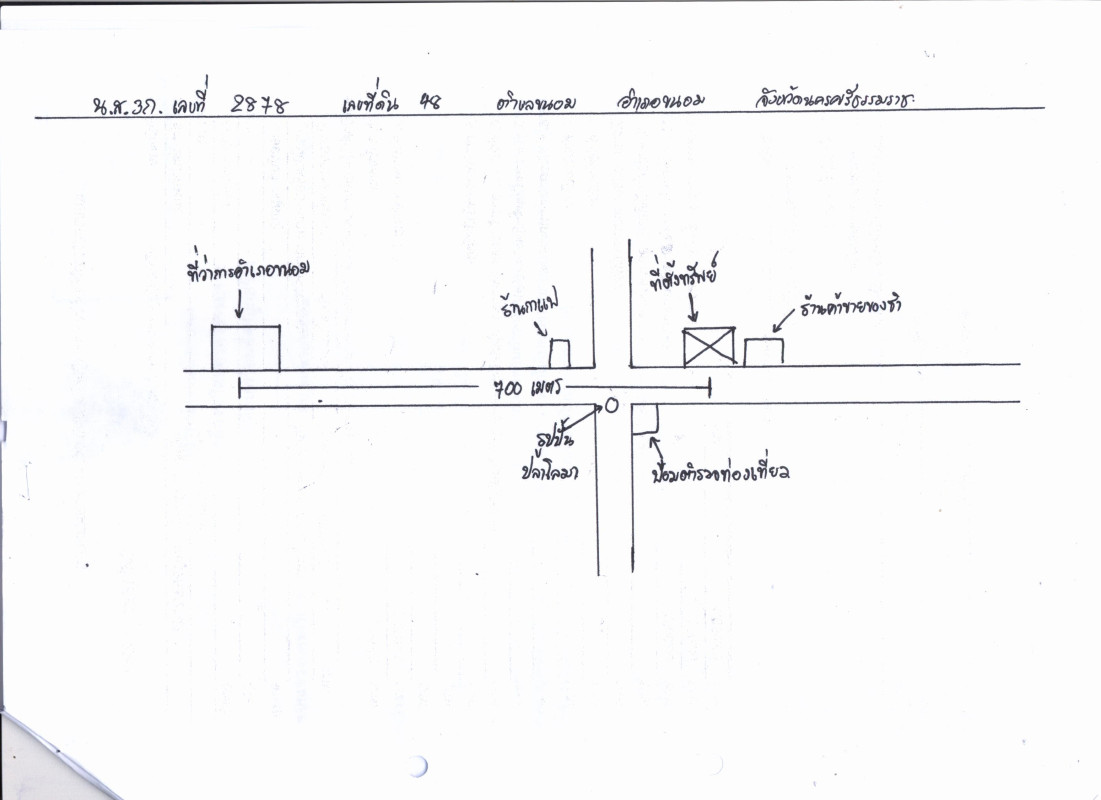 น.ส.3ก. เลขที่ 2878 เลขที่ดิน 48 ตำบลขนอม อำเภอขนอม จังหวัดนครศรีธรรมราช
ที่ว่าการอำเภอขนอม
ร้านกาแฟ
ที่ตั้งทรัพย์
ร้านค้าขายของชำ
700 เมตร
รูปปั้น
ปลาโลมา
ป้อมตำรวจท่องเที่ยว